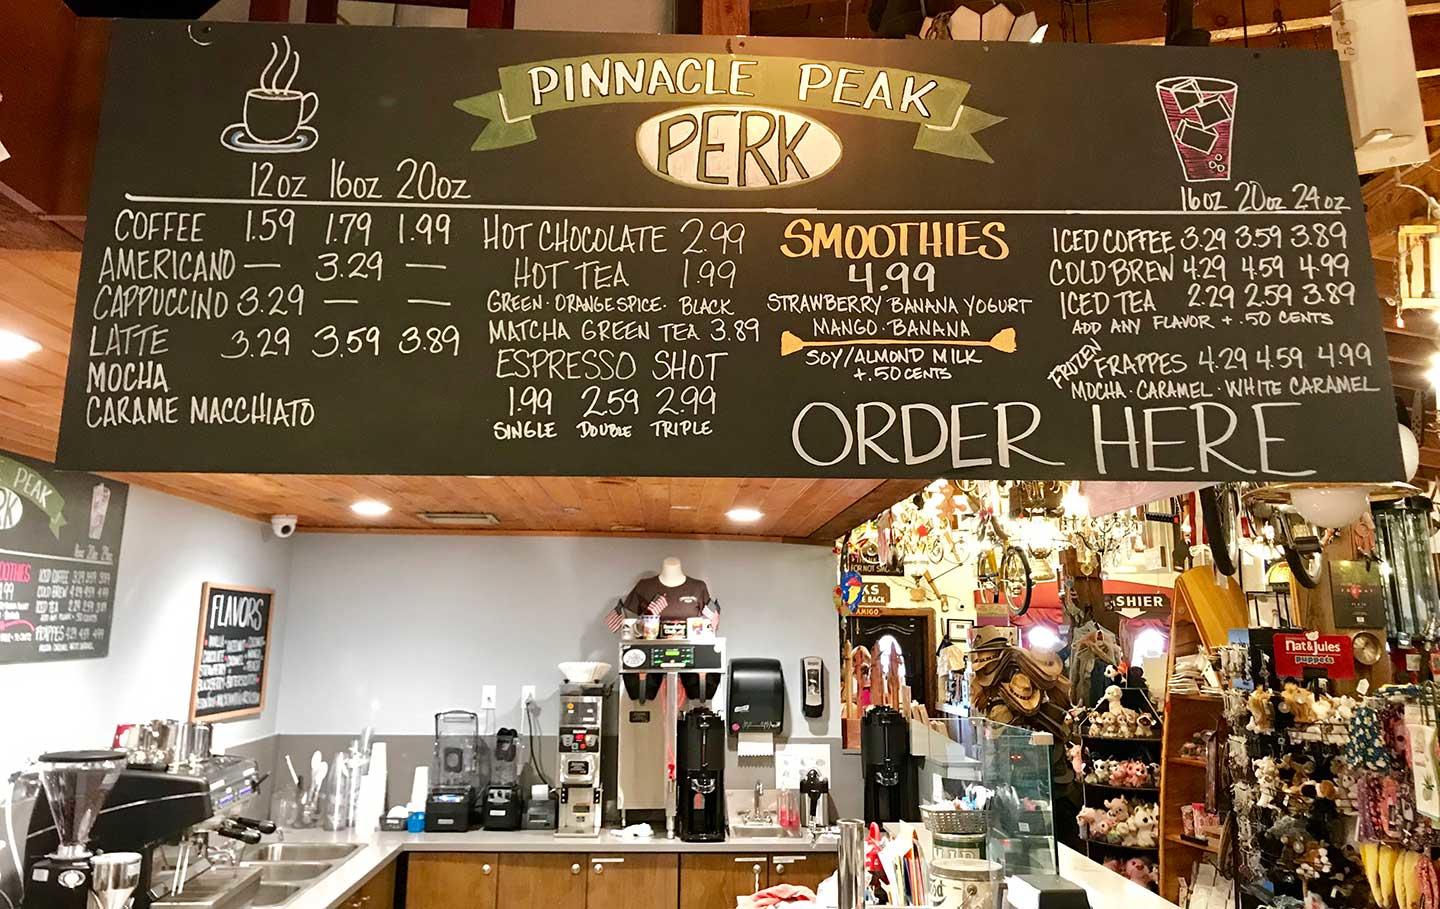 PINNACLE PEAK
PERK
12oz 16oz 20oz
COFFEE 1.59 1.79 1.99
AMERICANO — 3.29 —
CAPPUCCINO 3.29 — —
LATTE 3.29 3.59 3.89
MOCHA
CARAME MACCHIATO
HOT CHOCOLATE 2.99
HOT TEA 1.99
GREEN · ORANGE SPICE · BLACK
MATCHA GREEN TEA 3.89
ESPRESSO SHOT
1.99 2.59 2.99
SINGLE DOUBLE TRIPLE
SMOOTHIES
4.99
STRAWBERRY BANANA YOGURT
MANGO · BANANA
SOY/ALMOND MILK
+.50 CENTS
16oz 20oz 24oz
ICED COFFEE 3.29 3.59 3.89
COLD BREW 4.29 4.59 4.99
ICED TEA 2.29 2.59 3.89
ADD ANY FLAVOR + .50 CENTS
FROZEN FRAPPES 4.29 4.59 4.99
MOCHA · CARAMEL · WHITE CARAMEL
ORDER HERE
PEAK
FLAVORS
ICED COFFEE
COLD BREW
ICED TEA
FRAPPES
BACK
AMIGO
SHIER
Nat & Jules
puppets